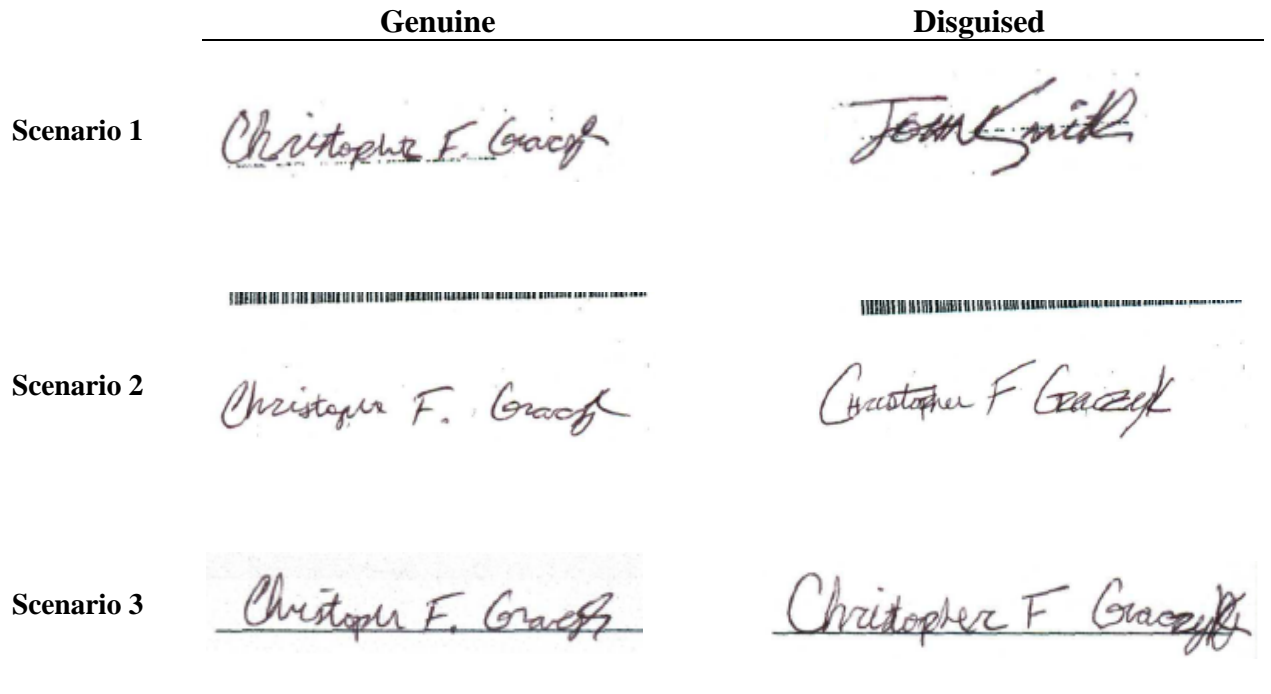 Genuine Disguised
Scenario 1 Christopher F. John Smith
Scenario 2 Christopher F. Christopher F Graczyk
Scenario 3 Christopher F. Christopher F Graczyk